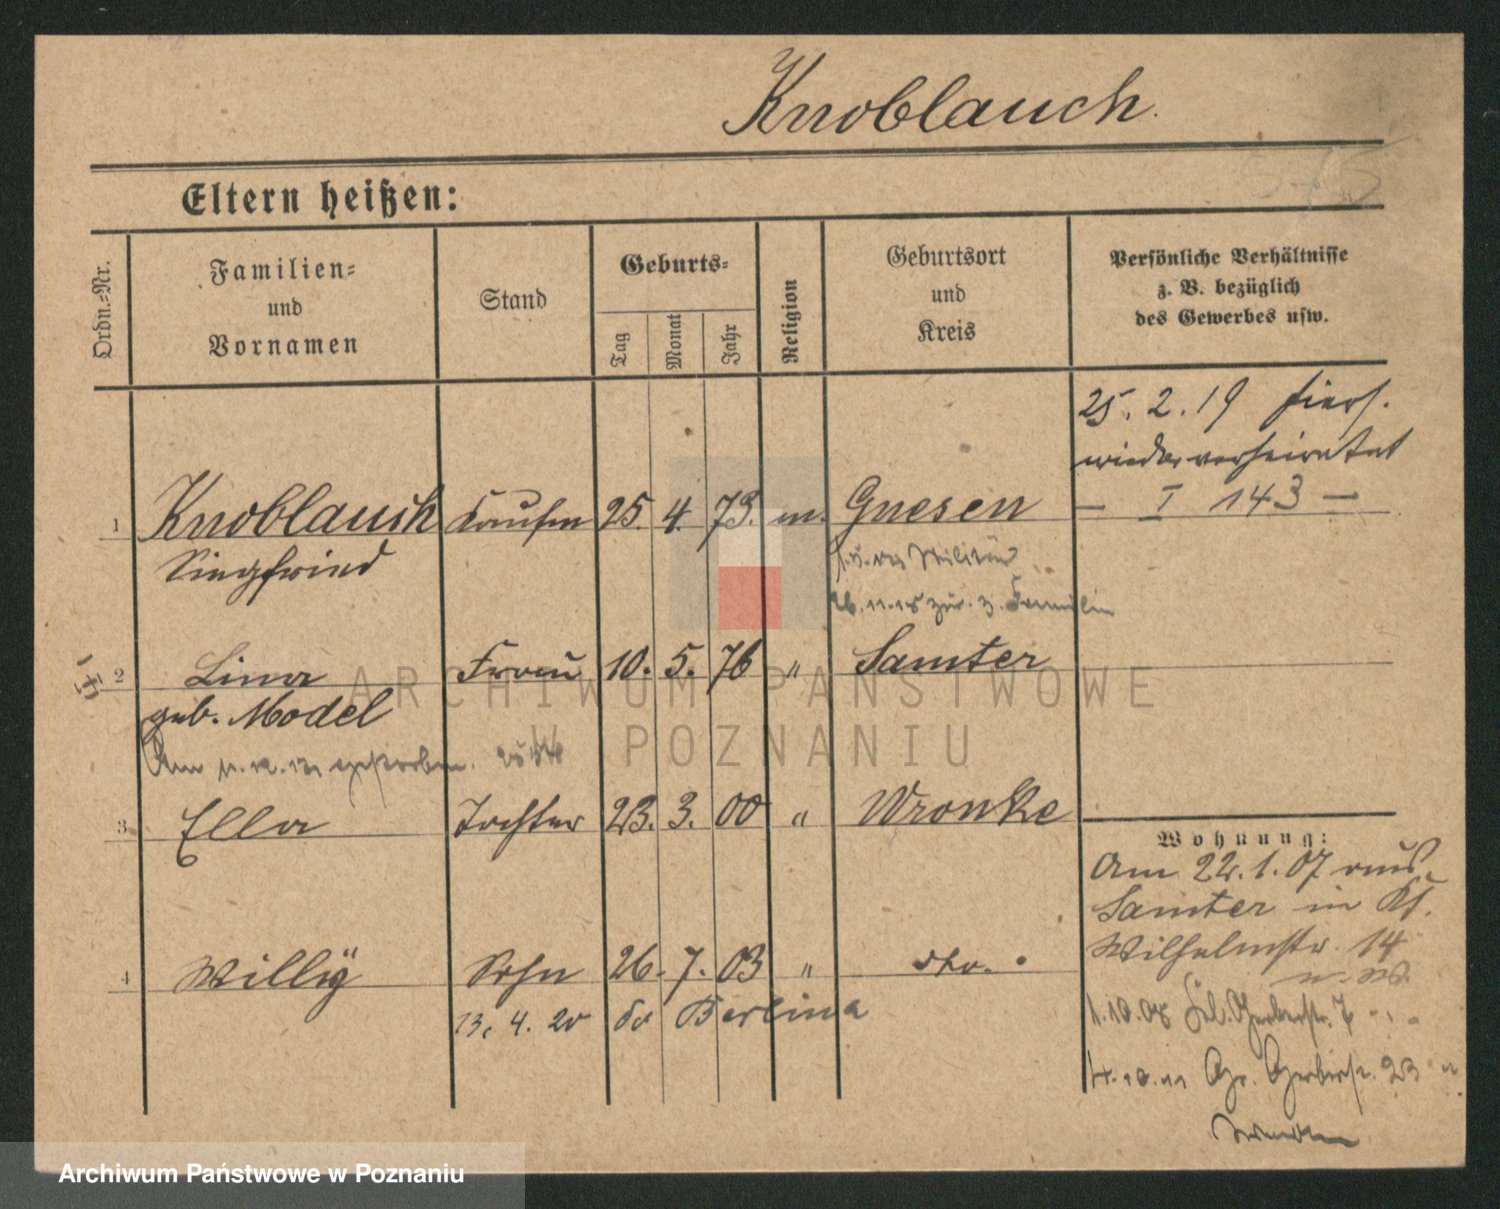 Knoblauch.
Eltern heißen:
Ordn.-Nr.
Familien- und Vornamen
Stand
Geburts-
Tag
Monat
Jahr
Religion
Geburtsort und Kreis
Persönliche Verhältnisse z. B. bezüglich des Gewerbes usw.
25. 2. 19 hier
wieder verheiratet
— I 143 —
1 Knoblauch Kaufm 25. 4. 73. m. Gnesen
Siegfried
Militär
26.11.18 zur. z. Familie
2 Lina Frau 10. 5. 76 " Samter
geb. Model
Am gestorben.
3 Ella Tochter 23. 3. 00 " Wronke
Wohnung:
Am 22. 1. 07 aus
Samter in
Wilhelmstr. 14
4 Willÿ Sohn 26. 7. 03 " dto.
13. 4. 20 Berlin
1.10.08 Gerberstr. 7
4.10.11 Gr. Gerberstr. 23
ARCHIWUM PAŃSTWOWE
W POZNANIU
Archiwum Państwowe w Poznaniu